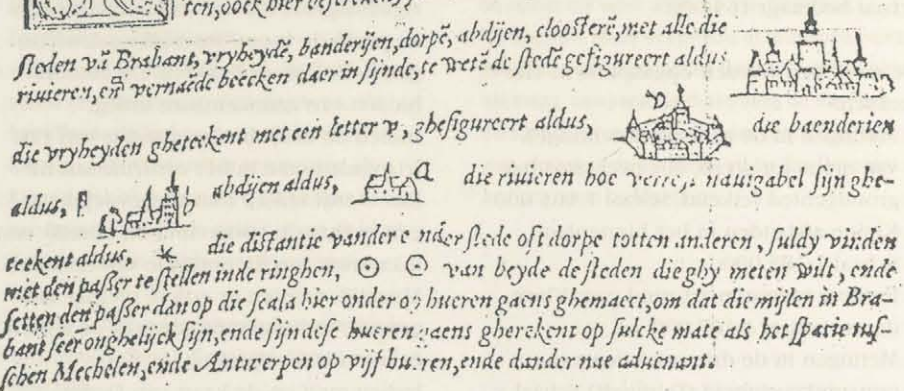 ten, oock hier beschreven
steden vā Brabant, vryheydē, banderijen, dorpē, abdijen, cloosterē, met alle die
rivieren, eñ vernaēde beecken daer in sijnde, te wetē de stedē gefigureert aldus
die vryheyden gheteekent met een letter v, ghefigureert aldus, v die baenderien
aldus, b abdijen aldus, a die rivieren hoe verre nauigabel sijn ghe-
teekent aldus, * die distantie vander eender stede oft dorpe totten anderen, suldy vinden
met den passer te stellen inde ringhen, ⊙ ⊙ van beyde de steden die ghy meten wilt, ende
setten den passer dan op die scala hier onder op hueren gaens ghemaect, om dat die mijlen in Bra-
bant seer onghelijck sijn, ende sijn dese hueren gaens gherekent op sulcke mate als het spacie tus-
schen Mechelen, ende Antwerpen op vijf hueren, ende dander nae aduenant.